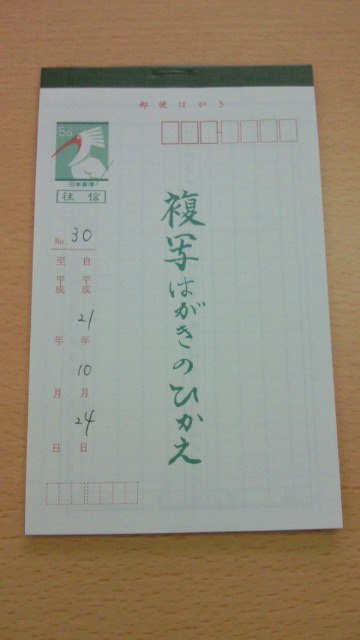 郵便はがき
50
日本郵便
往信
複写はがきのひかえ
No. 30
自 平成 21 年 10 月 24 日
至 平成 年 月 日